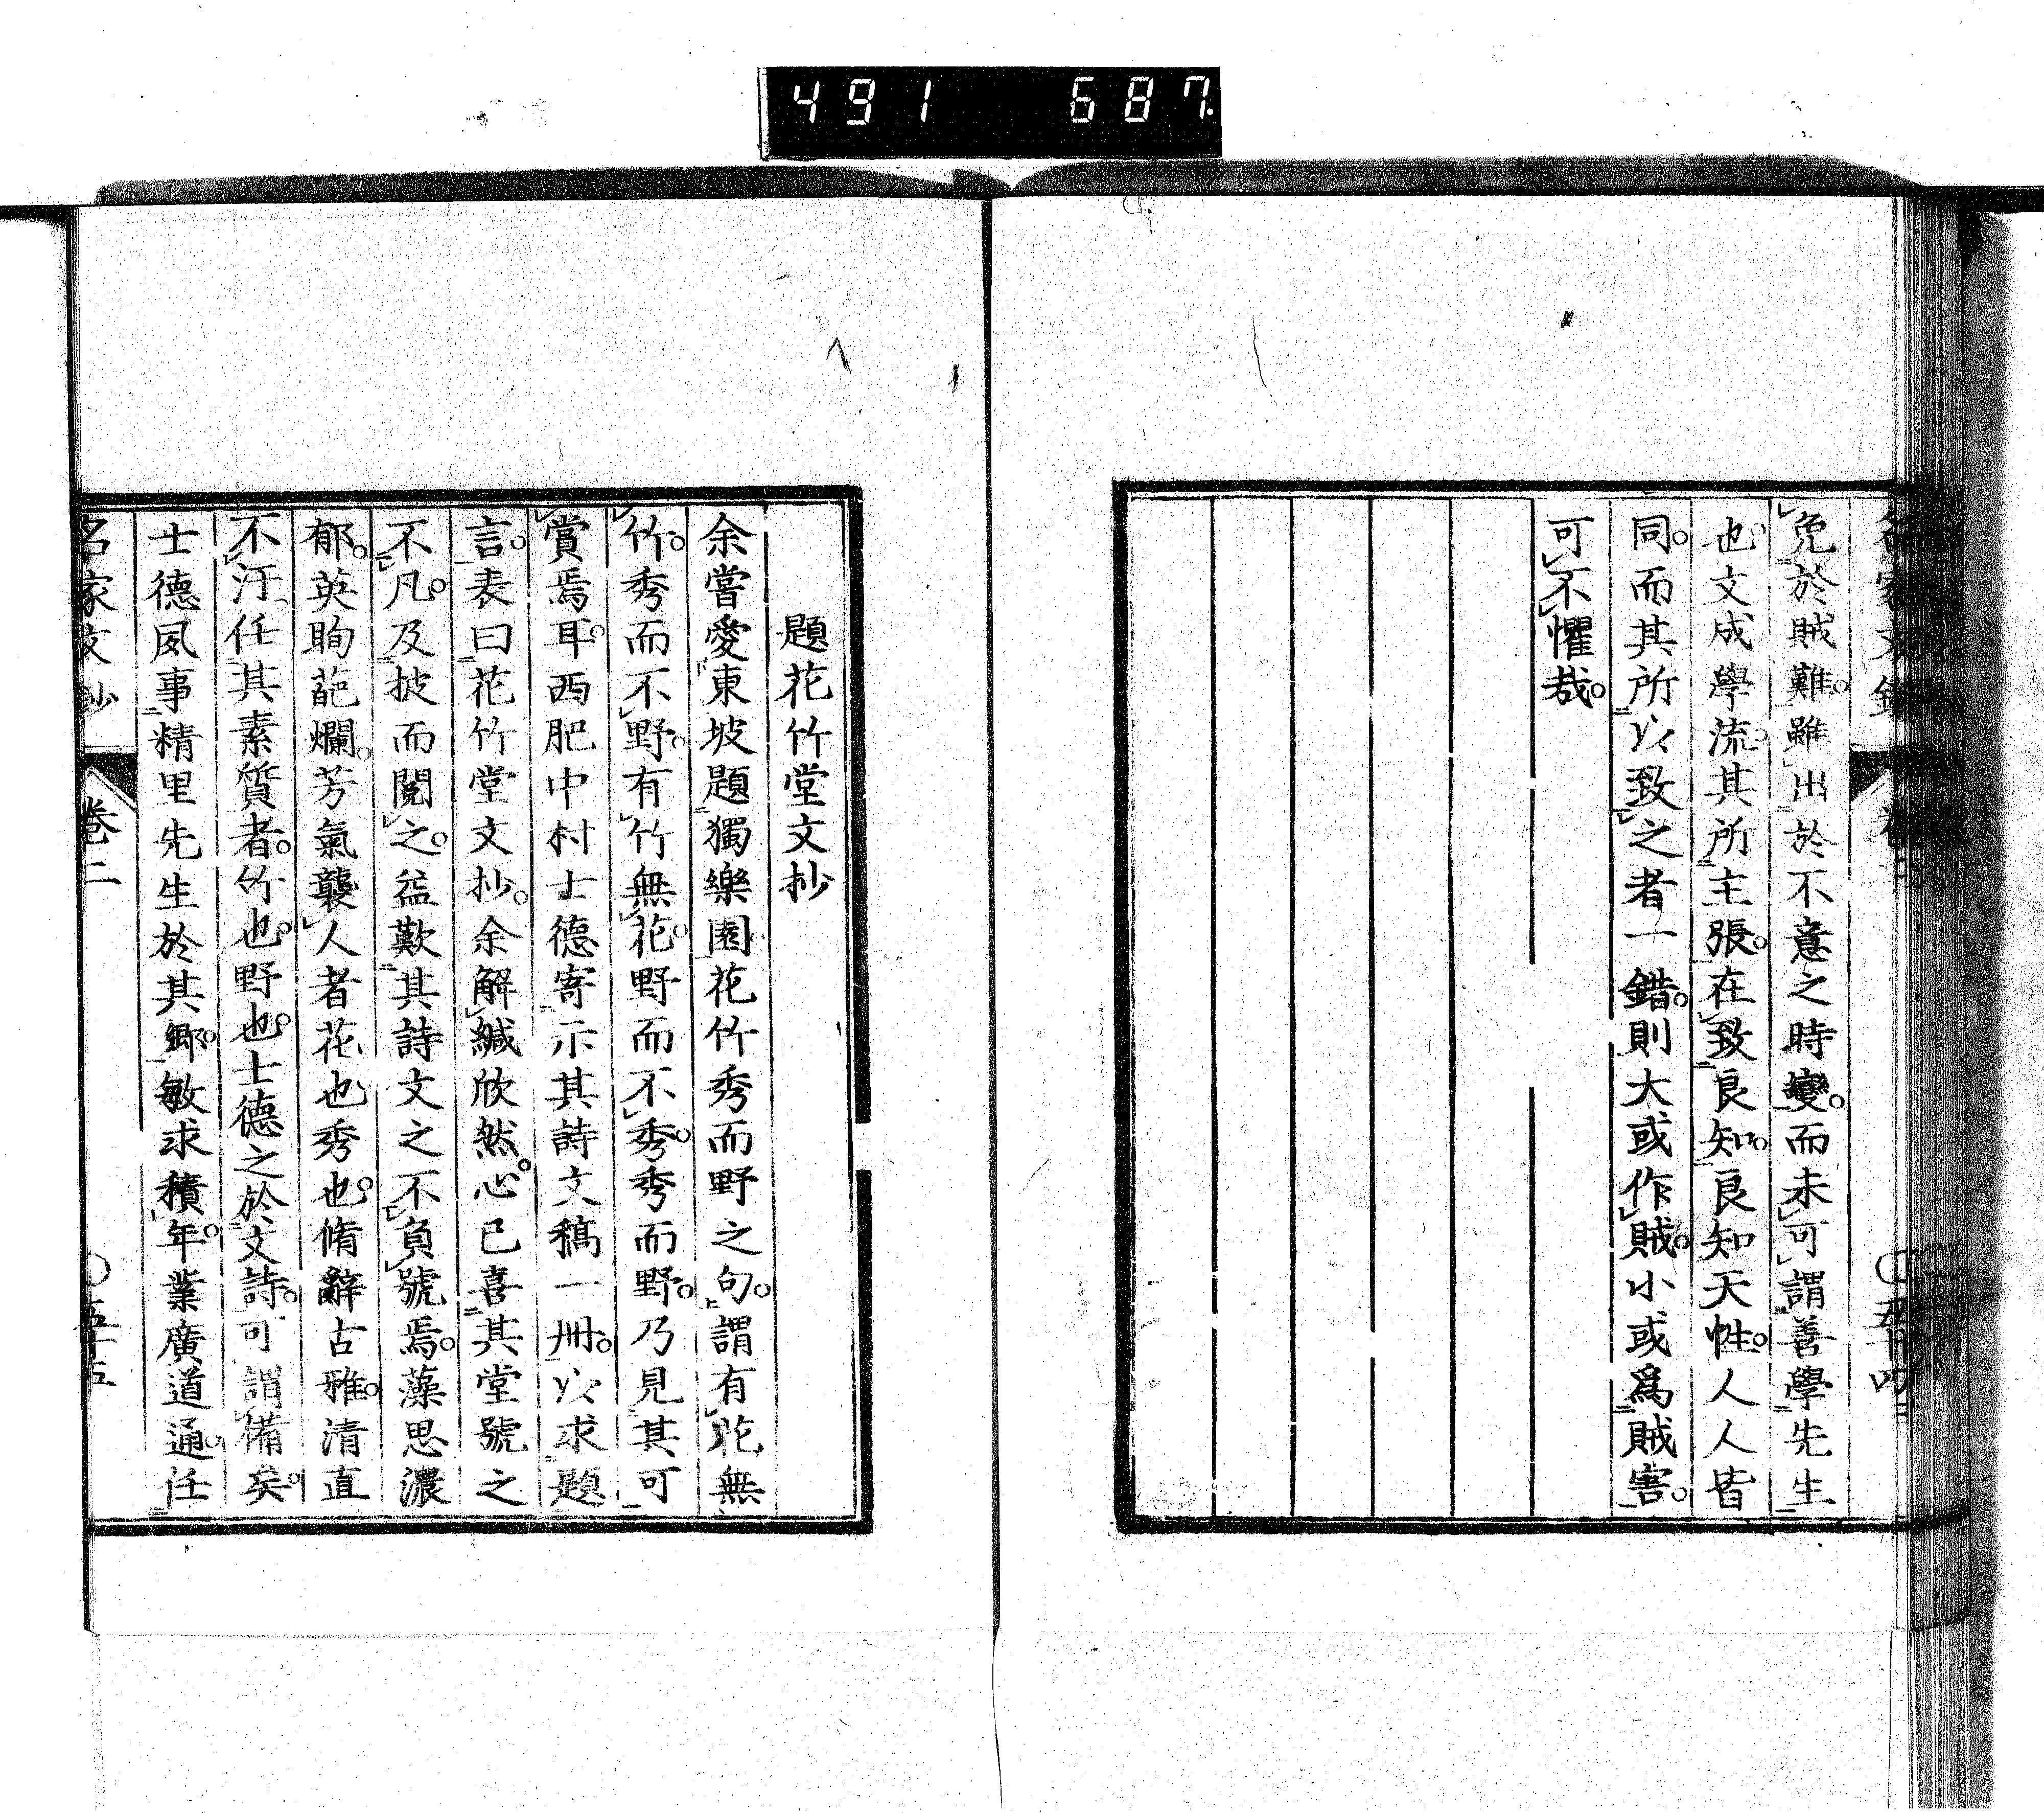 491 687.
免於賊難。雖出於不意之時變。而未可謂善學先生
也文成學流其所主張。在致良知。良知天性。人人皆
同。而其所以致之者一錯。則大或作賊。小或爲賊害。
可不懼哉。
題花竹堂文抄
余嘗愛東坡題獨樂園花竹秀而野之句。謂有花無
竹。秀而不野。有竹無花。野而不秀。秀而野。乃見其可
賞焉耳。西肥中村士德寄示其詩文稿一冊。以求題
言。表曰花竹堂文抄。余解緘欣然。心已喜其堂號之
不凡。及披而閱之。益歎其詩文之不負號焉。藻思濃
郁。英眴葩爛。芳氣襲人者花也秀也。脩辭古雅。清直
不汙任其素質者。竹也。野也。士德之於文詩。可謂備矣。
士德夙事精里先生於其鄉。敏求積年。業廣道通。任
名家文鈔 卷二 五十五